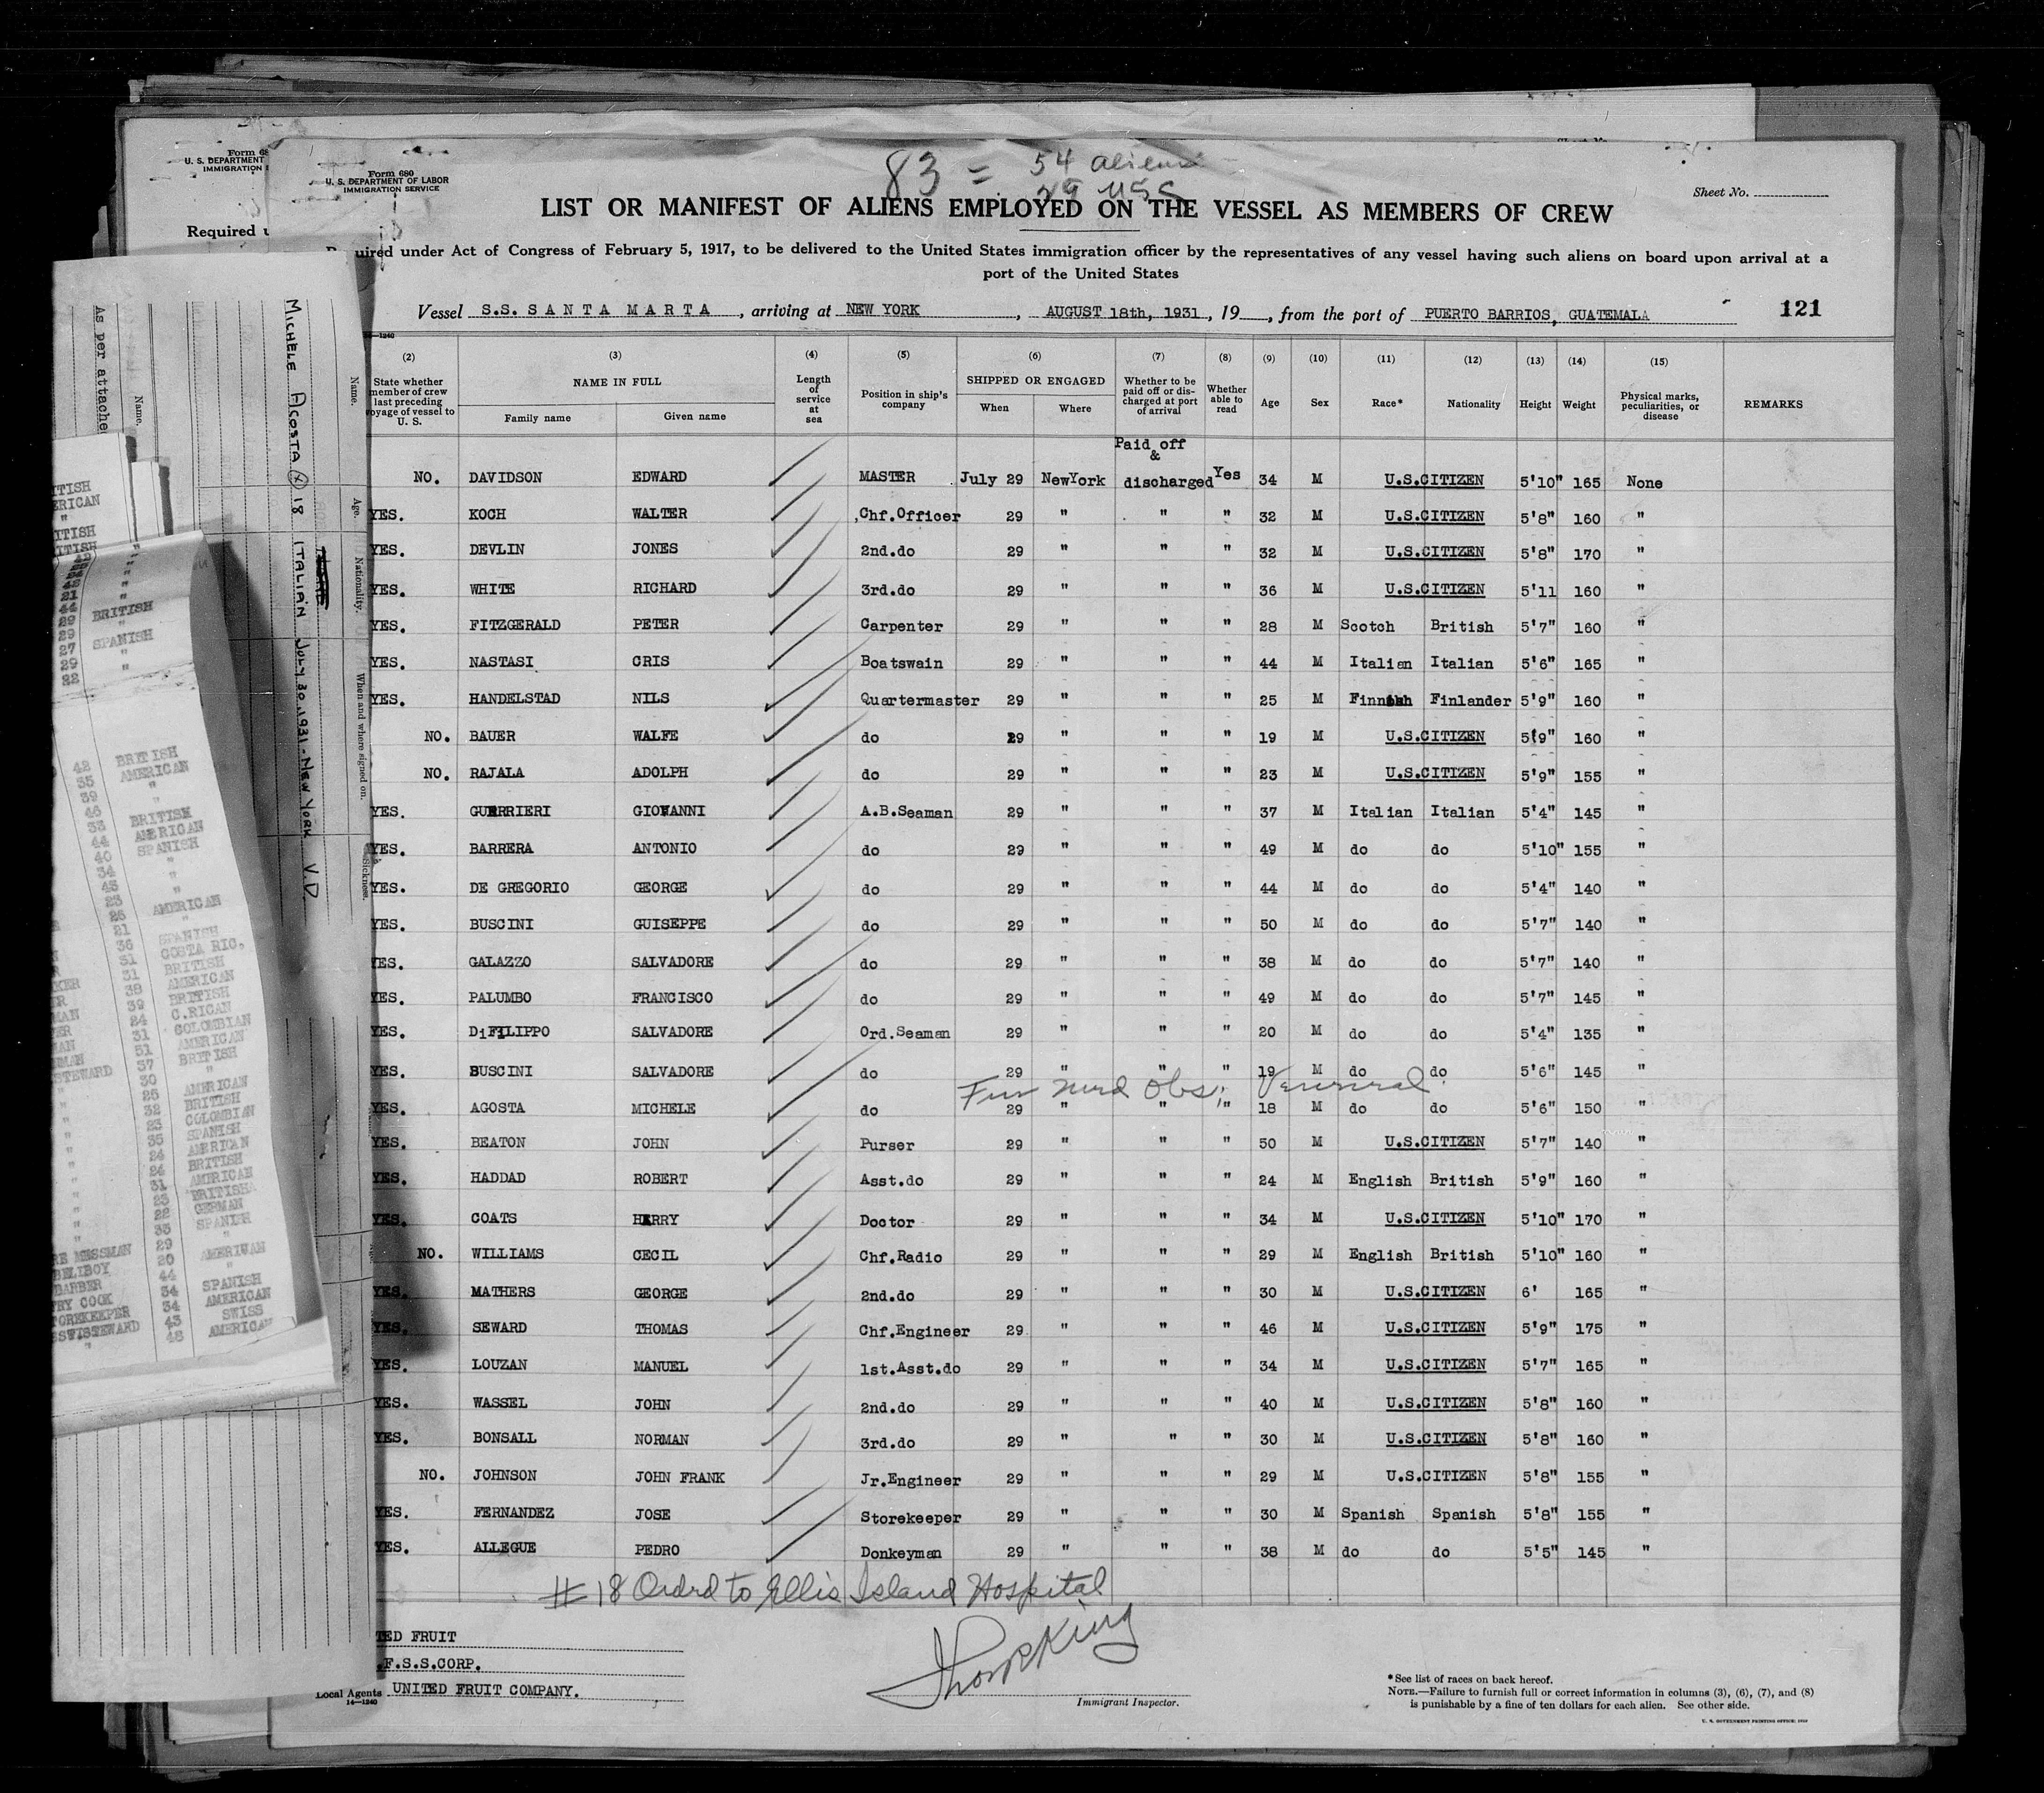 83 = 54 aliens
29 USC
Form 680
U. S. DEPARTMENT OF LABOR
IMMIGRATION SERVICE
Sheet No.
LIST OR MANIFEST OF ALIENS EMPLOYED ON THE VESSEL AS MEMBERS OF CREW
Required under Act of Congress of February 5, 1917, to be delivered to the United States immigration officer by the representatives of any vessel having such aliens on board upon arrival at a
port of the United States
Vessel S.S. SANTA MARTA, arriving at NEW YORK, AUGUST 18th, 1931, 19, from the port of PUERTO BARRIOS, GUATEMALA 121
(2) (3) (4) (5) (6) (7) (8) (9) (10) (11) (12) (13) (14) (15)
State whether member of crew last preceding voyage of vessel to U. S. NAME IN FULL Family name Given name Length of service at sea Position in ship's company SHIPPED OR ENGAGED When Where Whether to be paid off or discharged at port of arrival Whether able to read Age Sex Race* Nationality Height Weight Physical marks, peculiarities, or disease REMARKS
Paid off
&
NO. DAVIDSON EDWARD MASTER July 29 NewYork discharged Yes 34 M U.S.CITIZEN 5'10" 165 None
YES. KOCH WALTER Chf.Officer 29 " " " 32 M U.S.CITIZEN 5'8" 160 "
YES. DEVLIN JONES 2nd.do 29 " " " 32 M U.S.CITIZEN 5'8" 170 "
YES. WHITE RICHARD 3rd.do 29 " " " 36 M U.S.CITIZEN 5'11 160 "
YES. FITZGERALD PETER Carpenter 29 " " " 28 M Scotch British 5'7" 160 "
YES. NASTASI CRIS Boatswain 29 " " " 44 M Italian Italian 5'6" 165 "
YES. HANDELSTAD NILS Quartermaster 29 " " " 25 M Finnish Finlander 5'9" 160 "
NO. BAUER WALFE do 29 " " " 19 M U.S.CITIZEN 5'9" 160 "
NO. RAJALA ADOLPH do 29 " " " 23 M U.S.CITIZEN 5'9" 155 "
YES. GUERRIERI GIOVANNI A.B.Seaman 29 " " " 37 M Italian Italian 5'4" 145 "
YES. BARRERA ANTONIO do 29 " " " 49 M do do 5'10" 155 "
YES. DE GREGORIO GEORGE do 29 " " " 44 M do do 5'4" 140 "
YES. BUSCINI GUISEPPE do 29 " " " 50 M do do 5'7" 140 "
YES. GALAZZO SALVADORE do 29 " " " 38 M do do 5'7" 140 "
YES. PALUMBO FRANCISCO do 29 " " " 49 M do do 5'7" 145 "
YES. DiFILIPPO SALVADORE Ord.Seaman 29 " " " 20 M do do 5'4" 135 "
YES. BUSCINI SALVADORE do 29 " " " 19 M do do 5'6" 145 "
Med Obs: Venereal
YES. AGOSTA MICHELE do 29 " " " 18 M do do 5'6" 150 "
YES. BEATON JOHN Purser 29 " " " 50 M U.S.CITIZEN 5'7" 140 "
YES. HADDAD ROBERT Asst.do 29 " " " 24 M English British 5'9" 160 "
YES. COATS HARRY Doctor 29 " " " 34 M U.S.CITIZEN 5'10" 170 "
NO. WILLIAMS CECIL Chf.Radio 29 " " " 29 M English British 5'10" 160 "
YES. MATHERS GEORGE 2nd.do 29 " " " 30 M U.S.CITIZEN 6' 165 "
YES. SEWARD THOMAS Chf.Engineer 29 " " " 46 M U.S.CITIZEN 5'9" 175 "
YES. LOUZAN MANUEL 1st.Asst.do 29 " " " 34 M U.S.CITIZEN 5'7" 165 "
YES. WASSEL JOHN 2nd.do 29 " " " 40 M U.S.CITIZEN 5'8" 160 "
YES. BONSALL NORMAN 3rd.do 29 " " " 30 M U.S.CITIZEN 5'8" 160 "
NO. JOHNSON JOHN FRANK Jr.Engineer 29 " " " 29 M U.S.CITIZEN 5'8" 155 "
YES. FERNANDEZ JOSE Storekeeper 29 " " " 30 M Spanish Spanish 5'8" 155 "
YES. ALLEGUE PEDRO Donkeyman 29 " " " 38 M do do 5'5" 145 "
#18 Ordrd to Ellis Island Hospital
TED FRUIT
.F.S.S.CORP.
Local Agents UNITED FRUIT COMPANY.
14—1240
Immigrant Inspector.
*See list of races on back hereof.
NOTE.—Failure to furnish full or correct information in columns (3), (6), (7), and (8)
is punishable by a fine of ten dollars for each alien. See other side.
U. S. GOVERNMENT PRINTING OFFICE: 1930
Name. Age. Nationality. When and where signed on. Sickness.
MICHELE ACOSTA 18 ITALIAN JULY 30, 1931 - NEW YORK V.D.
As per attached
Name.
42 BRITISH
35 AMERICAN
39 "
46 BRITISH
33 AMERICAN
44 SPANISH
40 "
34 "
43 "
23 AMERICAN
25 "
21 SPANISH
36 COSTA RIC.
31 BRITISH
31 AMERICAN
38 BRITISH
39 C.RICAN
24 COLOMBIAN
31 AMERICAN
51 BRITISH